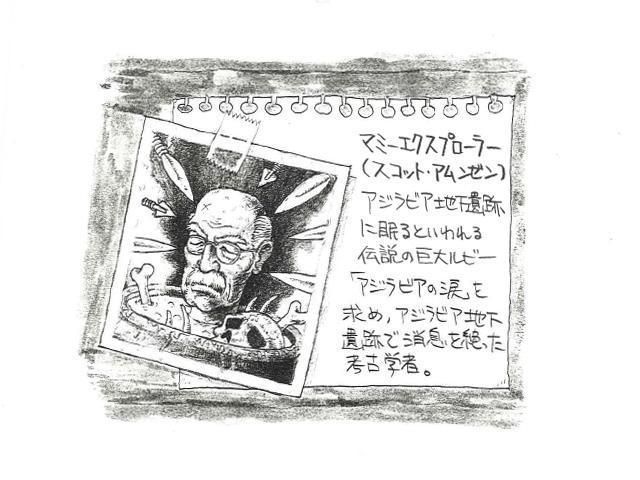 マミーエクスプローラー
(スコット・アムンゼン)
アジラビア地下遺跡
に眠るといわれる
伝説の巨大ルビー
「アジラビアの涙」を
求め，アジラビア地下
遺跡で消息を絶った
考古学者。